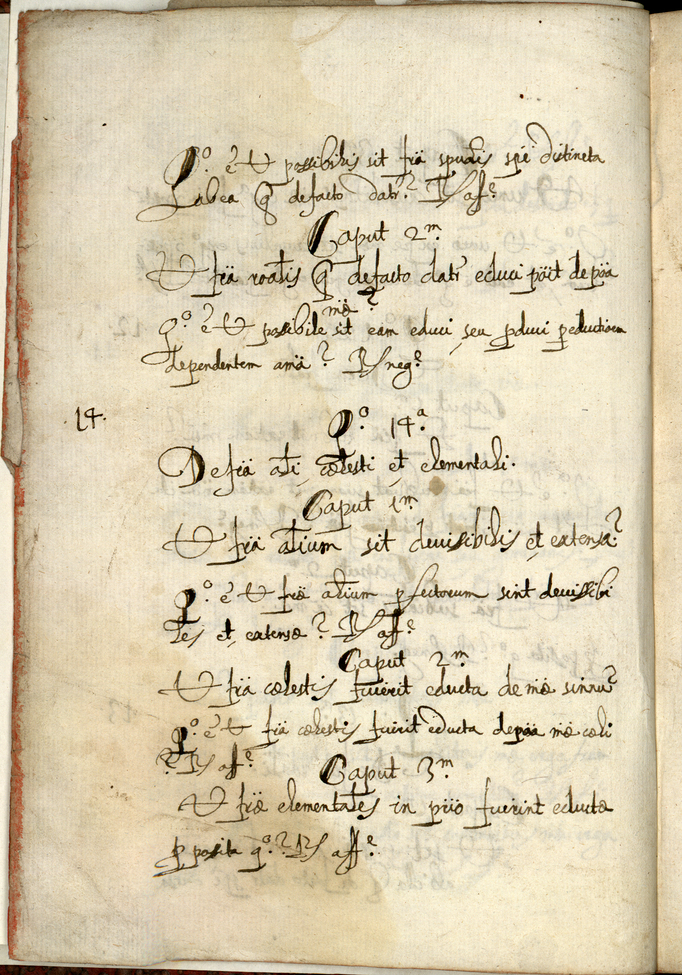 Qº. ē Ut possibilis sit frã spũalis spē distincta
ab ea q̃ defacto datr̃? Rs affe.
Caput 2m.
Ut frã roãlis q̃ defacto datr̃ educi põt de põa
mã?
qº. ē Ut possibile sit eam educi, seu pduci p eductionem
dependentem a mã? Rs nege.
14.
Qº. 14ª
De frã ali cœlesti et elementali.
Caput 1m
Ut frã alium sit devissibilis et extensa?
qº ē Ut frã alium pfectorum sint devissibi
les et extensæ? Rs affe.
Caput 2m.
Ut frã cœlestis fuerit educta de mã sinnu?
qº ē Ut frã cœlestis fuerit educta de põa mã cœli
? Rs affe.
Caput 3m.
Ut fræ elementales in prio fuerint eductæ
posita qº? Rs affe.